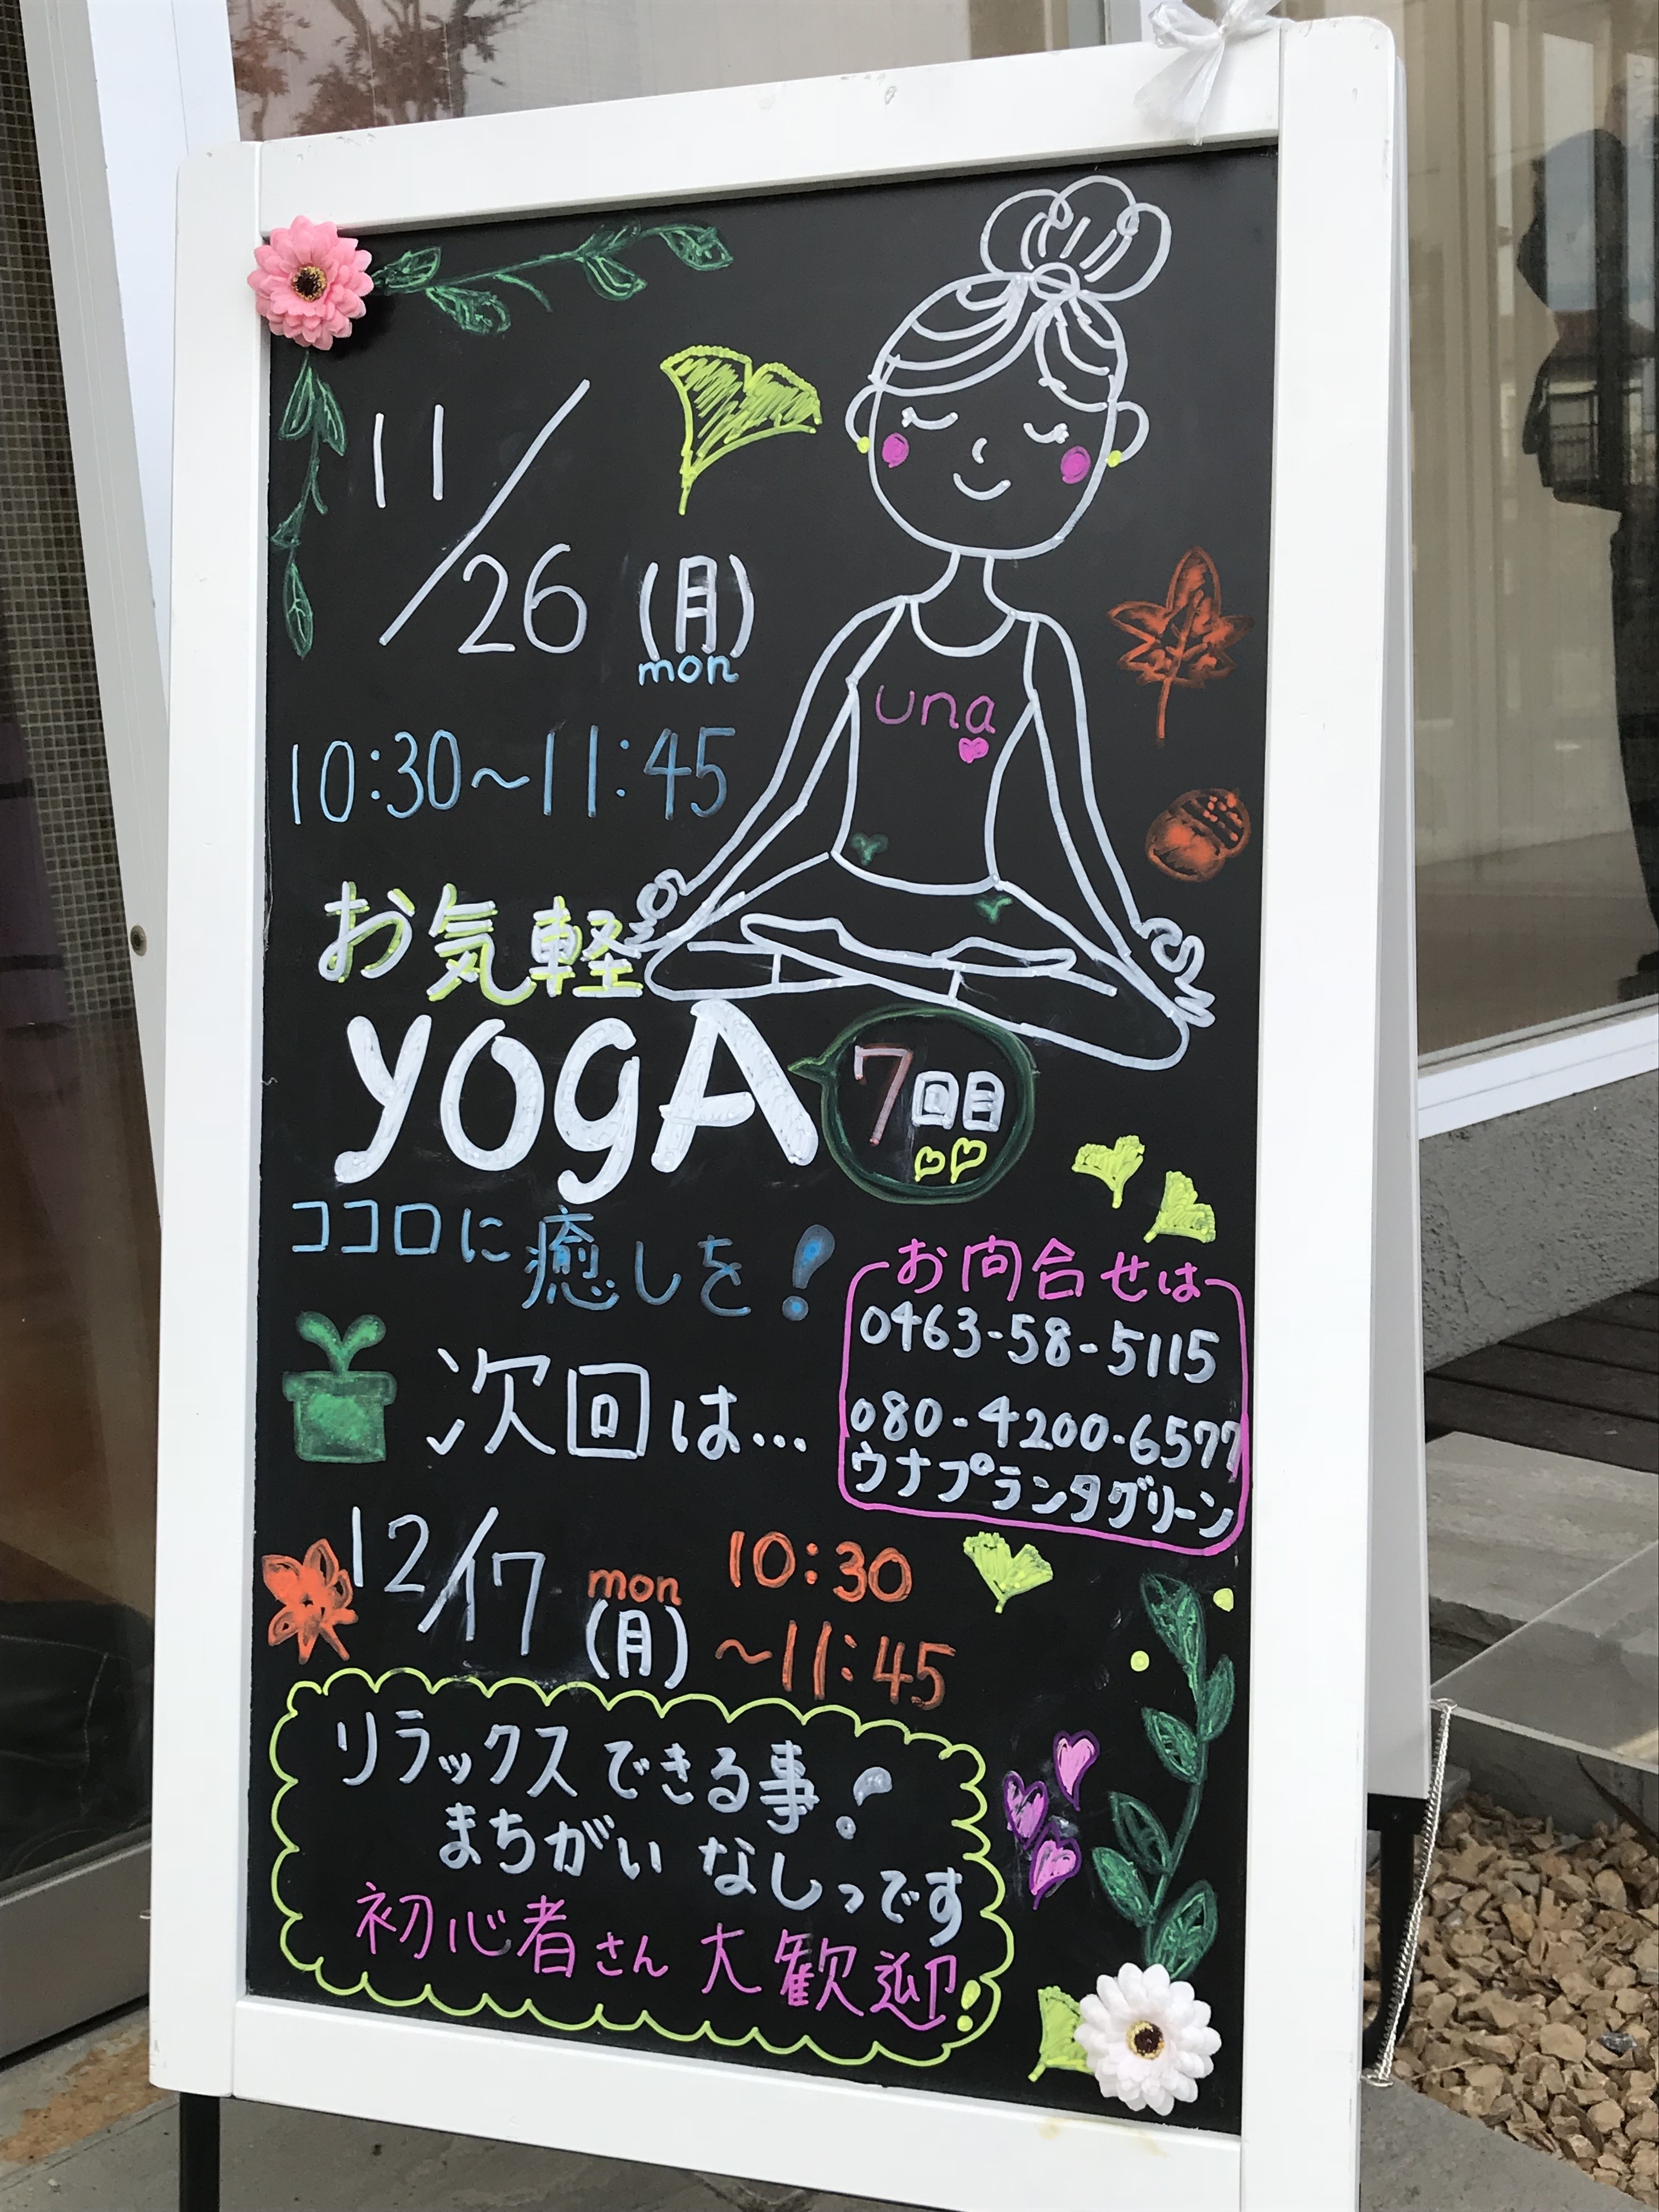 11/26(月)
mon
una
10:30~11:45
お気軽
yogA
7回目
ココロに癒しを!
お問合せは
0463-58-5115
080-4200-6577
ウナプランタグリーン
次回は…
12/17
mon
(月)
10:30
~11:45
リラックスできる事!
まちがいなしっです
初心者さん大歓迎!